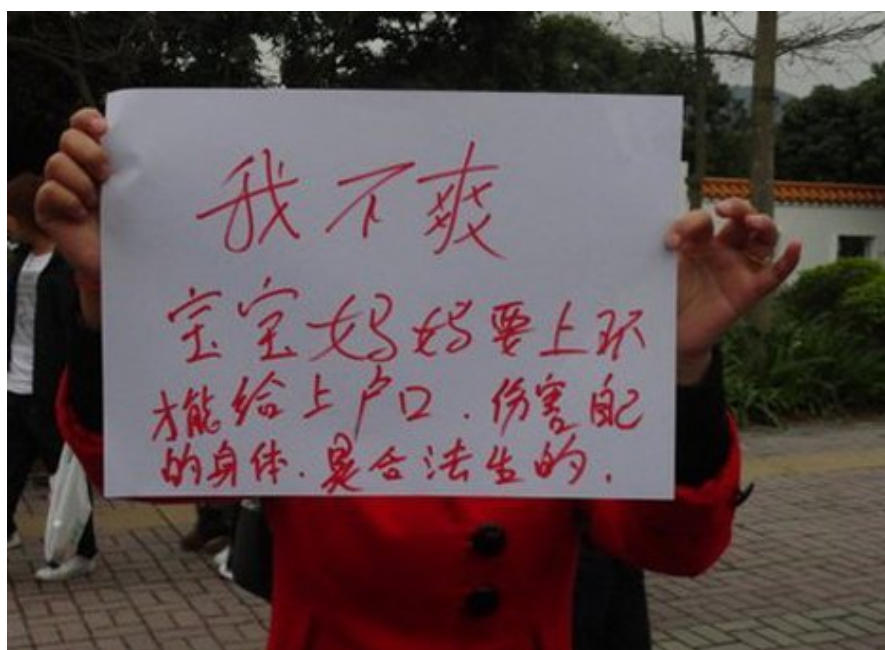 我不爽
宝宝妈妈要上环
才能给上户口.伤害自己
的身体.是合法生的.